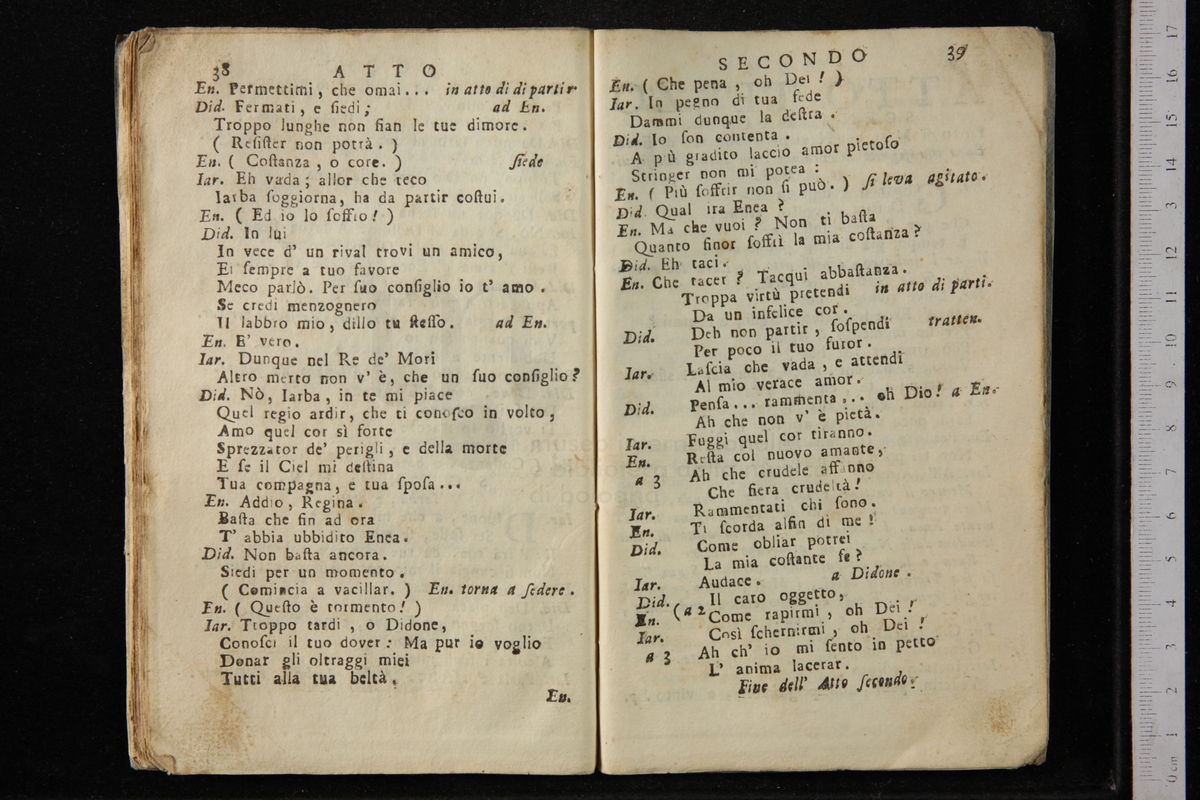 38 ATTO
En. Permettimi, che omai... in atto di di partir
Did. Fermati, e siedi; ad En.
Troppo lunghe non sian le tue dimore.
( Resister non potrà. )
En. ( Costanza, o core. ) siede
Iar. Eh vada; allor che teco
Iarba soggiorna, ha da partir costui.
En. ( Ed io lo soffro! )
Did. In lui
In vece d' un rival trovi un amico,
Ei sempre a tuo favore
Meco parlò. Per suo consiglio io t' amo.
Se credi menzognero
Il labbro mio, dillo tu stesso. ad En.
En. E' vero.
Iar. Dunque nel Re de' Mori
Altro merto non v' è, che un suo consiglio?
Did. Nò, Iarba, in te mi piace
Quel regio ardir, che ti conosco in volto,
Amo quel cor sì forte
Sprezzator de' perigli, e della morte
E se il Ciel mi destina
Tua compagna, e tua sposa...
En. Addio, Regina.
Basta che fin ad ora
T' abbia ubbidito Enea.
Did. Non basta ancora.
Siedi per un momento.
( Comincia a vacillar. ) En. torna a sedere.
En. ( Questo è tormento! )
Iar. Troppo tardi, o Didone,
Conosci il tuo dover: Ma pur io voglio
Donar gli oltraggi miei
Tutti alla tua beltà.
En.
SECONDO 39
En. ( Che pena, oh Dei! )
Iar. In pegno di tua fede
Dammi dunque la destra.
Did. Io son contenta.
A più gradito laccio amor pietoso
Stringer non mi potea:
En. ( Più soffrir non si può. ) si leva agitato.
Did. Qual ira Enea?
En. Ma che vuoi? Non ti basta
Quanto finor soffrì la mia costanza?
Did. Eh taci.
En. Che tacer? Tacqui abbastanza.
Troppa virtù pretendi in atto di parti.
Da un infelice cor.
Did. Deh non partir, sospendi tratten.
Per poco il tuo furor.
Iar. Lascia che vada, e attendi
Al mio verace amor.
Did. Pensa... rammenta... oh Dio! a En.
Ah che non v' è pietà.
Iar. Fuggi quel cor tiranno.
En. Resta col nuovo amante,
a 3 Ah che crudele affanno
Che fiera crudeltà!
Iar. Rammentati chi sono.
En. Ti scorda alfin di me!
Did. Come obliar potrei
La mia costante fe?
Iar. Audace. a Didone.
Did. Il caro oggetto,
En. (a 2 Come rapirmi, oh Dei!
Iar. Così schernirmi, oh Dei!
a 3 Ah ch' io mi sento in petto
L' anima lacerar.
Fine dell' Atto secondo.